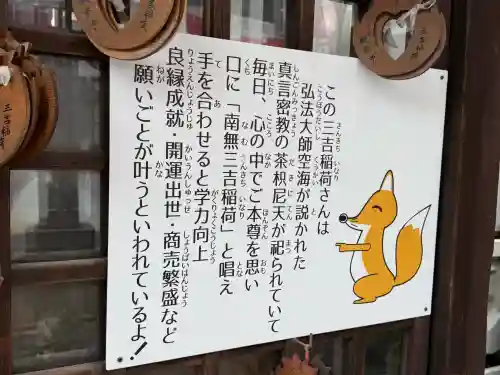 この三吉稲荷さんは
弘法大師空海が説かれた
真言密教の荼枳尼天が祀られていて
毎日、心の中でご本尊を思い
口に「南無三吉稲荷」と唱え
手を合わせると学力向上
良縁成就・開運出世・商売繁盛など
願いごとが叶うといわれているよ！